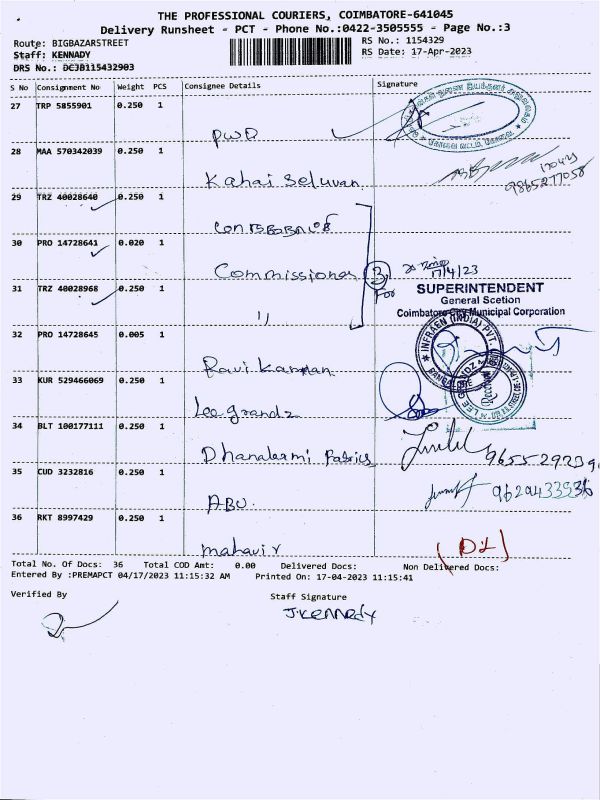 THE PROFESSIONAL COURIERS, COIMBATORE-641045
Delivery Runsheet - PCT - Phone No.:0422-3505555 - Page No.:3
Route: BIGBAZARSTREET
RS No.: 1154329
Staff: KENNADY
RS Date: 17-Apr-2023
DRS No.: DCJB115432903
S No Consignment No Weight PCS Consignee Details Signature
27 TRP 5855901 0.250 1
PWD
28 MAA 570342039 0.250 1
Kahai Selvan
9865277058
29 TRZ 40028640 0.250 1
30 PRO 14728641 0.020 1
Commissioner
3
17/4/23
For
31 TRZ 40028968 0.250 1
"
SUPERINTENDENT
General Scetion
Coimbatore City Municipal Corporation
32 PRO 14728645 0.005 1
Ravi Kannan
INFRAEN (INDIA) PVT.
33 KUR 529466069 0.250 1
Lee grandz
34 BLT 100177111 0.250 1
Dhanalaxmi Fabrics
35 CUD 3232816 0.250 1
ABU.
9629433536
36 RKT 8997429 0.250 1
mahavir
(DL)
Total No. Of Docs: 36 Total COD Amt: 0.00 Delivered Docs: Non Delivered Docs:
Entered By :PREMAPCT 04/17/2023 11:15:32 AM Printed On: 17-04-2023 11:15:41
Verified By
Staff Signature
J.KENNEDY